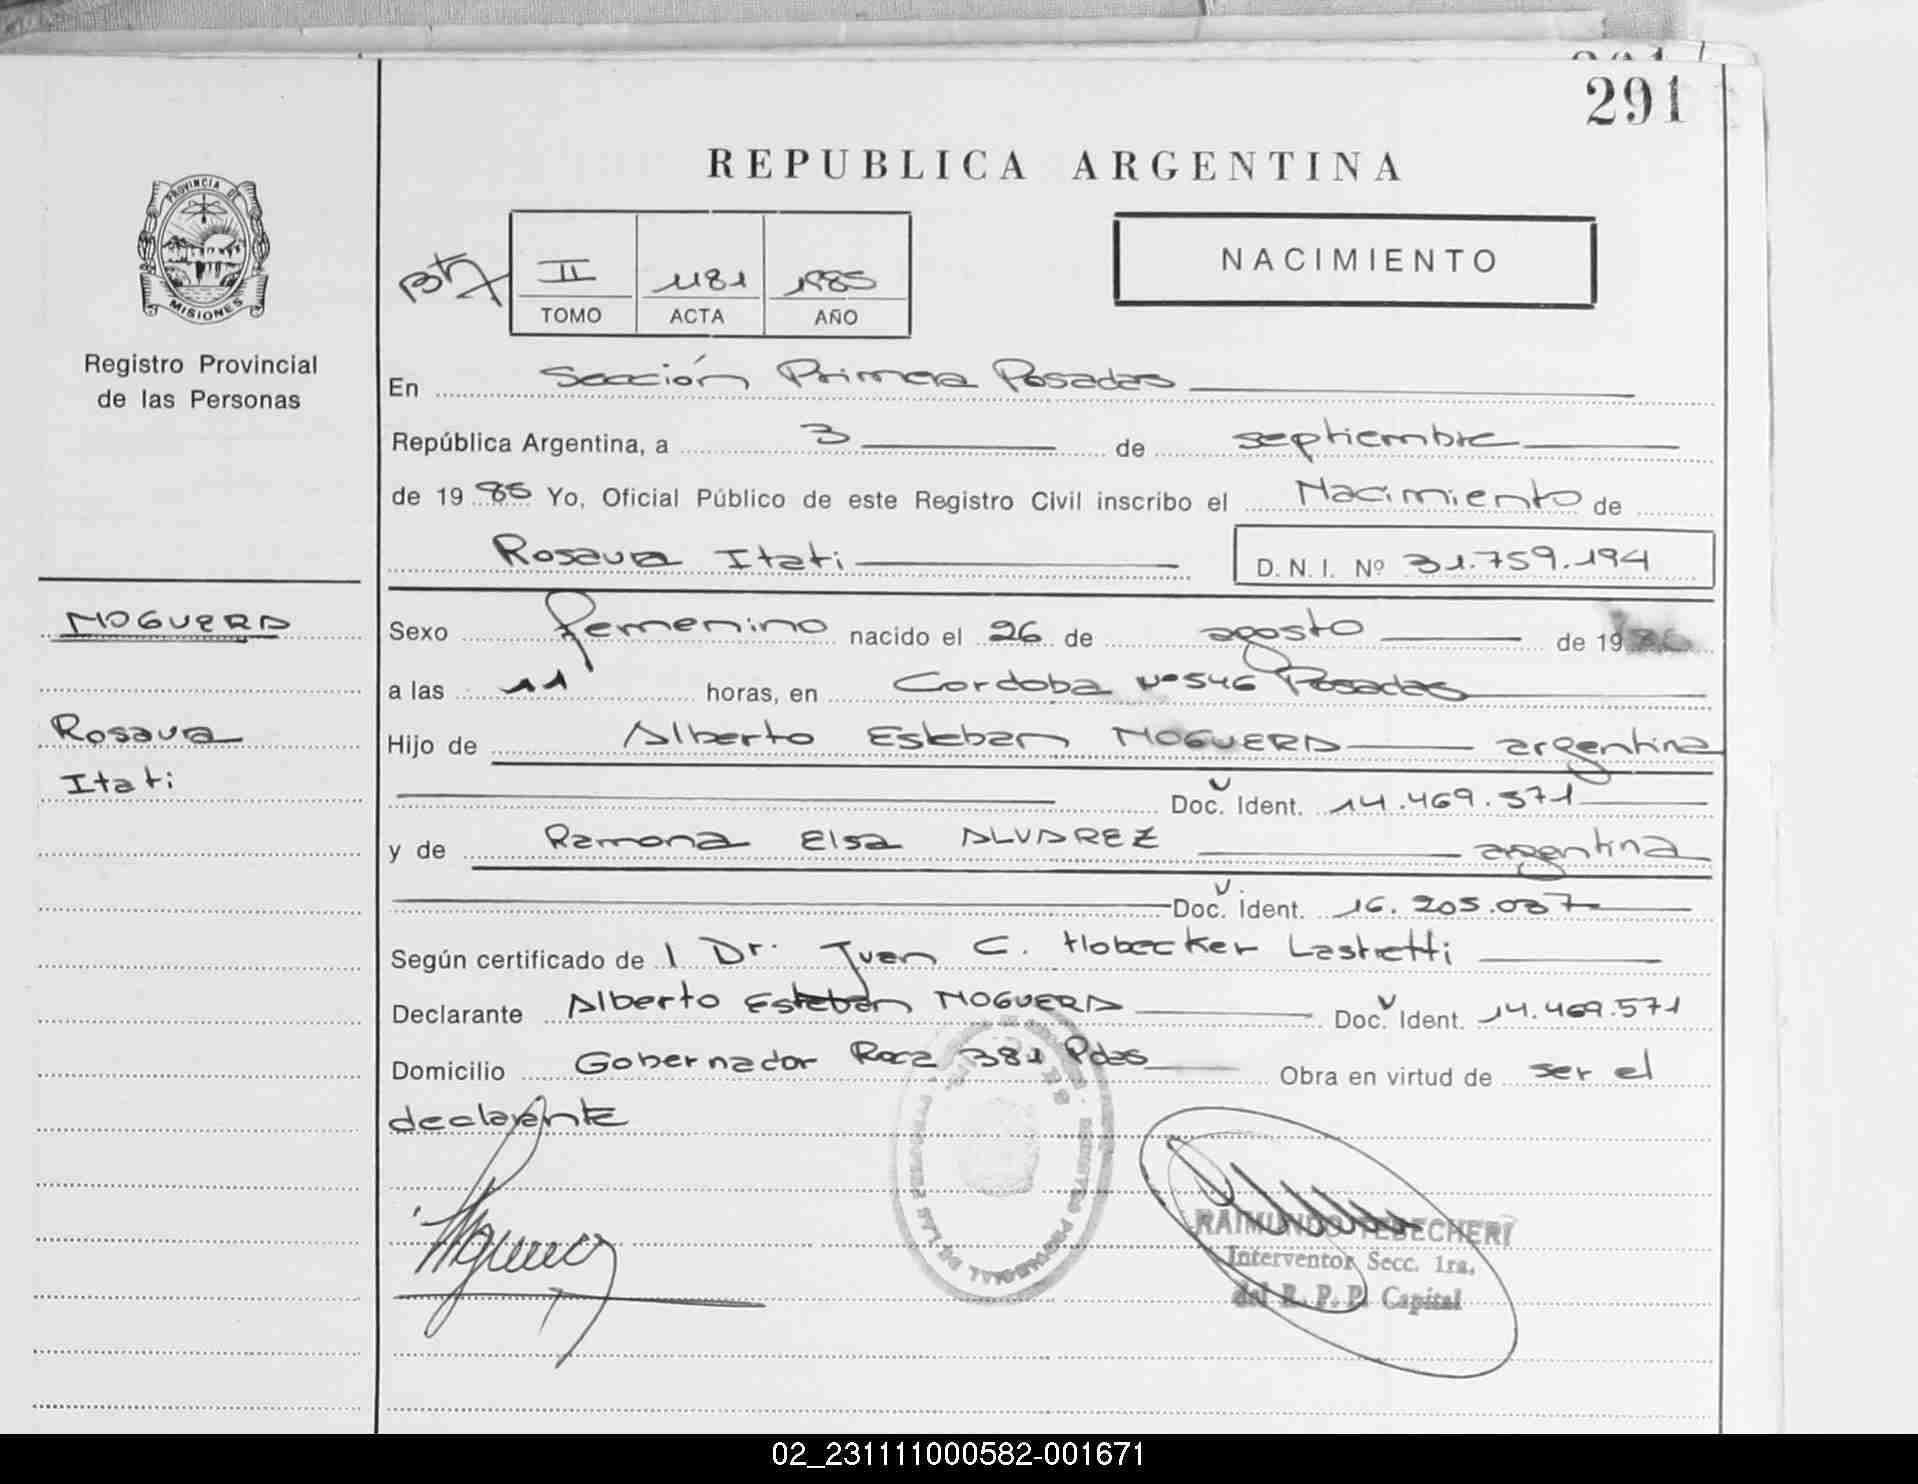 291
REPUBLICA ARGENTINA
PROVINCIA DE
MISIONES
Registro Provincial
de las Personas
II 1181 1985
TOMO ACTA AÑO
NACIMIENTO
En Sección Primera Posadas
República Argentina, a 3 de septiembre
de 1985 Yo, Oficial Público de este Registro Civil inscribo el Nacimiento de
Rosaura Itati D. N. I. Nº 31.759.194
NOGUERA
Sexo femenino nacido el 26 de agosto de 19
a las 11 horas, en Cordoba Nº 546 Posadas
Rosaura
Itati
Hijo de Alberto Esteban NOGUERA argentina
Doc. Ident. 14.469.571
y de Ramona Elsa ALVAREZ argentina
Doc. Ident. 16.205.037
Según certificado de l Dr. Juan C. Hobecker Lastretti
Declarante Alberto Esteban NOGUERA Doc. Ident. 14.469.571
Domicilio Gobernador Roca 381 Pdas Obra en virtud de ser el
declarante
RAIMUNDO TEBECHERI
Interventor Secc. 1ra.
del R. P. P. Capital
02_231111000582-001671